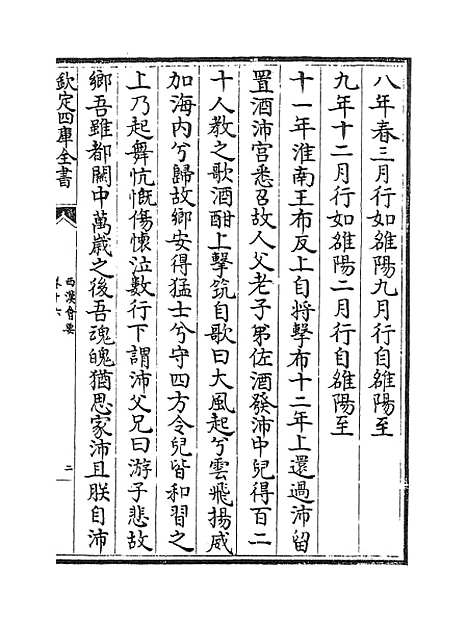 八年春三月行如雒陽九月行自雒陽至
九年十二月行如雒陽二月行自雒陽至
十一年淮南王布反上自將擊布十二年上還過沛留
置酒沛宮悉召故人父老子弟佐酒發沛中兒得百二
十人教之歌酒酣上擊筑自歌曰大風起兮雲飛揚威
加海内兮歸故鄉安得猛士兮守四方令兒皆和習之
上乃起舞忼慨傷懷泣數行下謂沛父兄曰游子悲故
鄉吾雖都關中萬歲之後吾魂魄猶思家沛且朕自沛
欽定四庫全書
西漢會要
卷十六
二